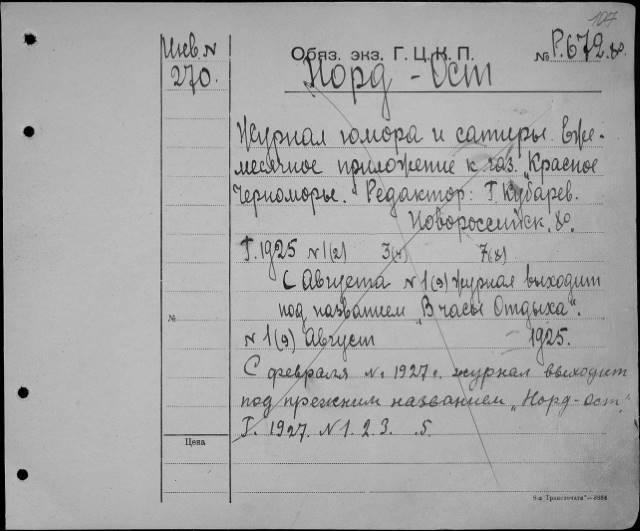 107
Инв. N
270.
Обяз. экз. Г. Ц. К. П.
№ Р.672.80.
Норд - Ост
Журнал юмора и сатиры. Еже-
месячное приложение к газ. "Красное
Черноморье. Редактор: Г. Кубарев.
Новороссийск. 8o.
Г. 1925 N 1(2) 3(4) 7(8)
С Августа N 1(9) журнал выходит
под названием "В часы Отдыха".
№
N 1(9) Август 1925.
С февраля м. 1927 г. журнал выходит
под прежним названием "Норд-ост."
Г. 1927. N 1. 2. 3. .5.
Цена
9-я Транспечати"—8884